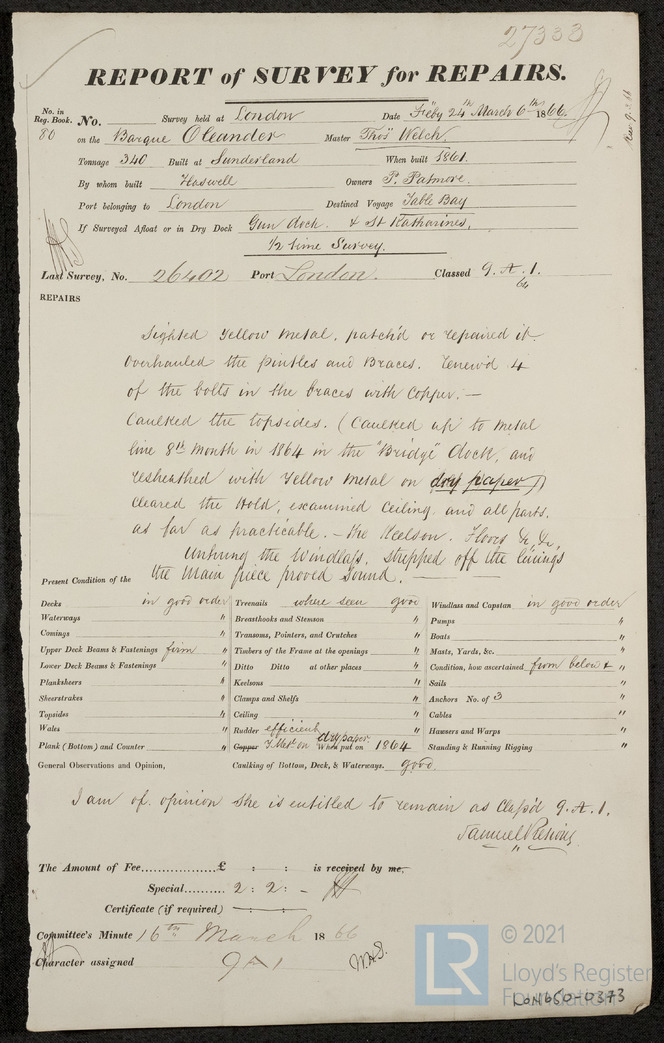 27333
REPORT of SURVEY for REPAIRS.
No. in Reg. Book. No. Survey held at London Date Feby 24th March 6th 1866.
80 on the Barque Oleander Master Thos Welch.
Tonnage 340 Built at Sunderland When built 1861.
By whom built Haswell Owners P. Patmore.
Port belonging to London Destined Voyage Table Bay
If Surveyed Afloat or in Dry Dock Gun dock. & St Katharines,
1/2 time Survey.
Last Survey, No. 26402 Port London. Classed 9. A. 1.
64
REPAIRS
Sighted Yellow Metal, patch'd or repaired it.
Overhauled the pintles and Braces. Renew'd 4
of the bolts in the braces with Copper. —
Caulked the topsides. (Caulked up to Metal
line 8th Month in 1864 in the "Bridge" dock, and
resheathed with Yellow Metal on dry paper)
Cleared the Hold, examined Ceiling, and all parts,
as far as practicable. — the Keelson. Floors &c, &c,
Unhung the Windlass, stripped off the linings
Present Condition of the the Main piece proved Sound. —
Decks in good order Treenails where seen good Windlass and Capstan in good order
Waterways " Breasthooks and Stemson " Pumps "
Comings " Transoms, Pointers, and Crutches " Boats "
Upper Deck Beams & Fastenings firm " Timbers of the Frame at the openings " Masts, Yards, &c. "
Lower Deck Beams & Fastenings " Ditto Ditto at other places " Condition, how ascertained from below & "
Planksheers " Keelsons " Sails "
Sheerstrakes " Clamps and Shelfs " Anchors No. of 3 "
Topsides " Ceiling " Cables "
Wales " Rudder efficient Hawsers and Warps "
Plank (Bottom) and Counter " Copper Y Metl on dry paper When put on 1864 Standing & Running Rigging "
General Observations and Opinion, Caulking of Bottom, Deck, & Waterways. good
I am of opinion she is entitled to remain as Class'd 9. A. 1.
Samuel
The Amount of Fee.................. £ : : is received by me,
Special.......... 2 : 2 : -
Certificate (if required)
Committee's Minute 16th March 1866
Character assigned 9 A 1
© 2021
LR
Lloyd's Register
Foundation
LON650-0373